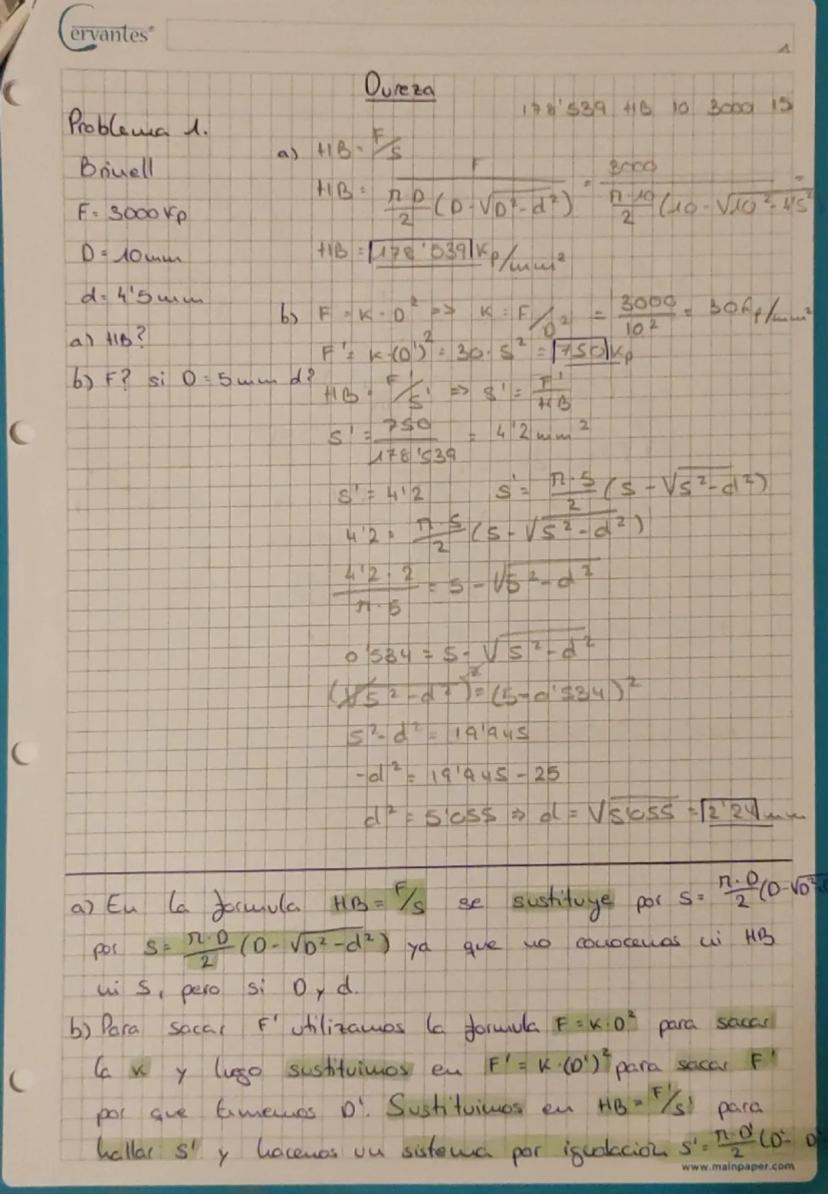 Cervantes®
1
Dureza
178'539 HB 10 3000 15
Problema 1.
Brinell
F = 3000 Kp
D = 10 mm
d = 4'5 mm
a) HB?
b) F? si D = 5 mm d?
a) HB = F/S
HB = F / (π·D/2 (D - √D² - d²)) = 3000 / (π·10/2 (10 - √10² - 4'5²)) =
HB = 178'539 Kp/mm²
b) F = K·D² => K = F/D² = 3000/10² = 30 Kp/mm²
F' = K·(D')² = 30·5² = 750 Kp
HB = F'/S' => S' = F'/HB
S' = 750/178'539 = 4'2 mm²
S' = 4'2 S' = π·5/2 (5 - √5² - d²)
4'2 = π·5/2 (5 - √5² - d²)
4'2·2/π·5 = 5 - √5² - d²
0'534 = 5 - √5² - d²
(√5² - d²)² = (5 - 0'534)²
5² - d² = 19'945
-d² = 19'945 - 25
d² = 5'055 => d = √5'055 = 2'24 mm
a) En la formula HB = F/S se sustituye por S = π·D/2 (D - √D²
por S = π·D/2 (D - √D² - d²) ya que no conocemos ni HB
ni S, pero si D y d.
b) Para sacar F' utilizamos la formula F = K·D² para sacar
la K y luego sustituimos en F' = K·(D')² para sacar F'
por que tenemos D'. Sustituimos en HB = F'/S' para
hallar S' y hacemos un sistema por igualacion S' = π·D'/2 (D' -
www.mainpaper.com